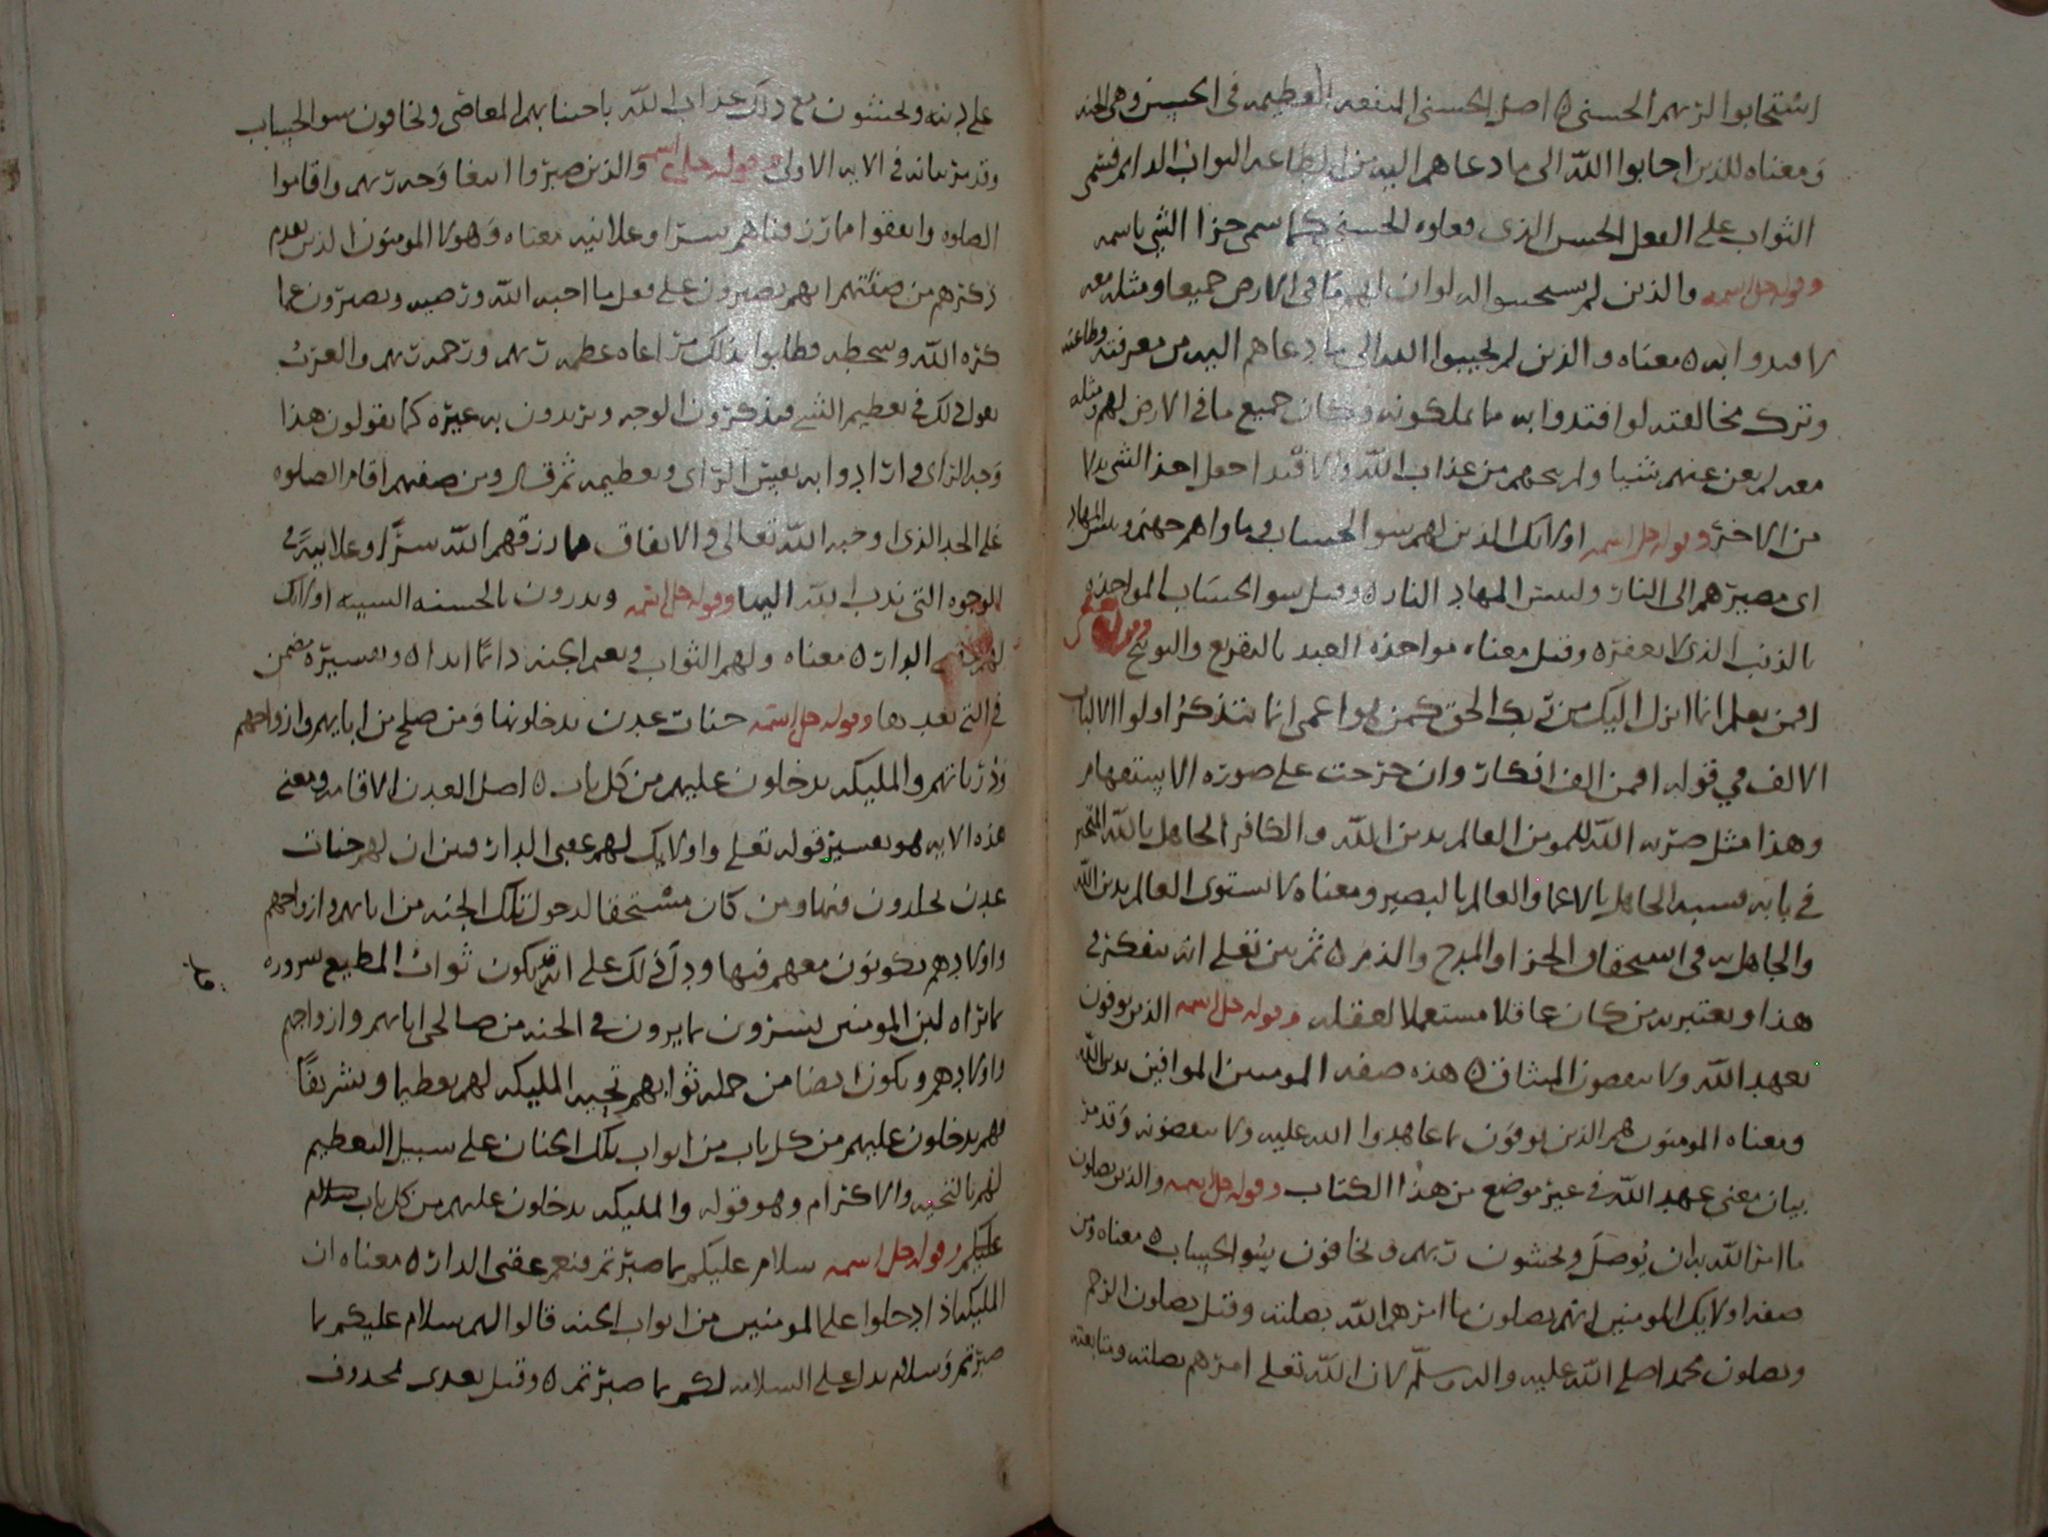 استجابوا لربهم الحسنى ه اصل الحسنى المنفعه العظيمه في الحسن وهي الجنه
ومعناه للذين اجابوا الله الى ما دعاهم اليه من الطاعه الثواب الدايم فسمى
الثواب على الفعل الحسن الذي فعلوه الحسنى كما سمى جزا الشي باسمه
وقوله جل اسمه والذين لم يستجيبوا له لو ان لهم ما في الارض جميعا ومثله معه
لافتدوا به ه معناه والذين لم يجيبوا الله الى ما دعاهم اليه من معرفته وطاعته
وترك مخالفته لو افتدوا به ما يملكونه وكان جميع ما في الارض لهم ومثله
معه لم يغن عنهم شيا ولم ينجهم من عذاب الله والافتدا جعل احد الشي بدلا
من الاخر وقوله جل اسمه اوليك الذين لهم سو الحساب وماواهم جهنم وبيس المهاد
اي مصيرهم الى النار ولبيس المهاد النار ه وقيل سو الحساب المواخذه
بالذنب الذي لا يغفره وقيل معناه مواخذه العبد بالتقريع والتوبيخ وقوله
افمن يعلم انما انزل اليك من ربك الحق كمن هو اعمى انما يتذكر اولوا الالباب
الالف في قوله افمن الف انكار وان خرجت على صوره الاستفهام
وهذا مثل ضربه الله للمومن العالم بدين الله والكافر الجاهل بالله المتحير
في بابه فشبه الجاهل بالاعما والعالم بالبصير ومعناه لا يستوى العالم بدين الله
والجاهل به في استحقاق الجزا والمدح والذم ه ثم بين تعلى انه يتفكر في
هذا ويعتبر به من كان عاقلا مستعملا لعقله وقوله جل اسمه الذين يوفون
بعهد الله ولا ينقضون الميثاق ه هذه صفه المومنين الموافين بدين الله
ومعناه المومنون هم الذين يوفون بما عاهدوا الله عليه ولا ينقضونه وقد مر
بيان معنى عهد الله في غير موضع من هذا الكتاب وقوله جل اسمه والذين يصلون
ما امر الله به ان يوصل ويخشون ربهم ويخافون سو الحساب ه معناه ومن
صفه اوليك المومنين انهم يصلون ما امرهم الله بصلته وقيل يصلون الرحم
ويصلون محمدا صلى الله عليه واله وسلم لان الله تعلى امرهم بصلته ومتابعته
على دينه ويخشون مع ذلك عذاب الله باجتنابهم المعاصي ويخافون سو الحساب
وقد مر بيانه في الايه الاولى وقوله جل اسمه والذين صبروا ابتغا وجه ربهم واقاموا
الصلوه وانفقوا مما رزقناهم سرا وعلانيه معناه وهولا المومنون الذين تقدم
ذكرهم من صفتهم انهم يصبرون على فعل ما احبه الله ورضيه ويصبرون عما
كره الله وسخطه فطلبوا بذلك مراعاه عظمه ربهم ورحمه ربهم والعرب
تقول ذلك في تعظيم الشي فيذكرون الوجه ويريدون به غيره كما يقولون هذا
وجه الراي وارادوا به نفس الراي وتعظيمه ثم قال ومن صفتهم اقام الصلوه
على الحد الذي اوجبه الله تعالى والانفاق مما رزقهم الله سرا وعلانيه في
الوجوه التي ندب الله اليها وقوله جل اسمه ويدرون بالحسنه السييه اوليك
لهم عقبى الدار ه معناه ولهم الثواب ونعم الجنه دايما ابدا ه وتفسيره مضمن
في التي بعدها وقوله جل اسمه جنات عدن يدخلونها ومن صلح من ابايهم وازواجهم
وذرياتهم والمليكه يدخلون عليهم من كل باب ه اصل العدن الاقامه ومعنى
هذه الايه هو تفسير قوله تعلى واوليك لهم عقبى الدار فبين ان لهم جنات
عدن يخلدون فيها ومن كان مستحقا لدخول تلك الجنه من ابايهم وازواجهم
واولادهم يكونون معهم فيها ودل ذلك على انه قد يكون ثواب المطيع سروره
بما يراه لان المومنين يسرون بما يرون في الجنه من صالحي ابايهم وازواجهم
واولادهم ويكون ايضا من جمله ثوابهم تحيه المليكه لهم تعظيما وتشريفا
فهم يدخلون عليهم من كل باب من ابواب تلك الجنان على سبيل التعظيم
لهم بالتحيه والاكرام وهو قوله والمليكه يدخلون عليهم من كل باب سلام
عليكم وقوله جل اسمه سلام عليكم بما صبرتم فنعم عقبى الدار ه معناه ان
المليكه اذا دخلوا على المومنين من ابواب الجنه قالوا لهم سلام عليكم بما
صبرتم وسلام يدل على السلامه لكم بما صبرتم ه وقيل بعدى محذوف